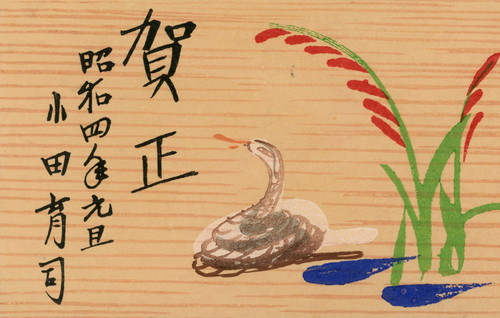 賀正
昭和四年元旦
小田育司